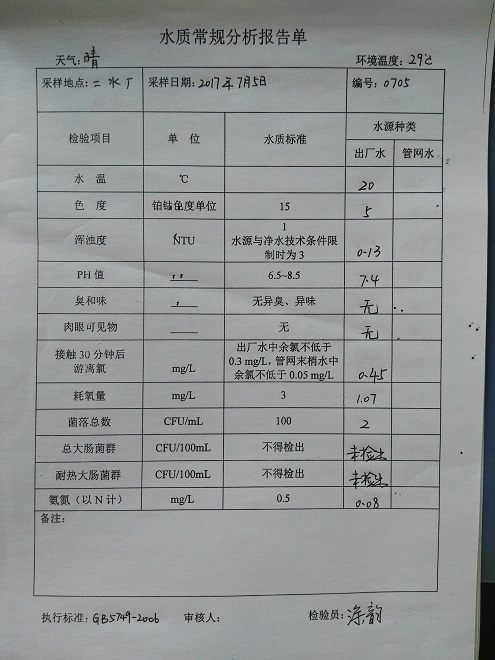 水质常规分析报告单
天气：晴 环境温度：29℃
采样地点：二水厂 采样日期：2017年7月5日 编号：0705
检验项目 单 位 水质标准 水源种类
出厂水 管网水
水 温 ℃ 20
色 度 铂钴色度单位 15 5
浑浊度 NTU 1
水源与净水技术条件限
制时为 3 0.13
PH 值 6.5~8.5 7.4
臭和味 无异臭、异味 无
肉眼可见物 无 无
接触 30 分钟后
游离氯 mg/L 出厂水中余氯不低于
0.3 mg/L，管网末梢水中
余氯不低于 0.05 mg/L 0.45
耗氧量 mg/L 3 1.07
菌落总数 CFU/mL 100 2
总大肠菌群 CFU/100mL 不得检出 未检出
耐热大肠菌群 CFU/100mL 不得检出 未检出
氨氮（以 N 计） mg/L 0.5 0.08
备注：
执行标准：GB5749-2006 审核人： 检验员：涂韵